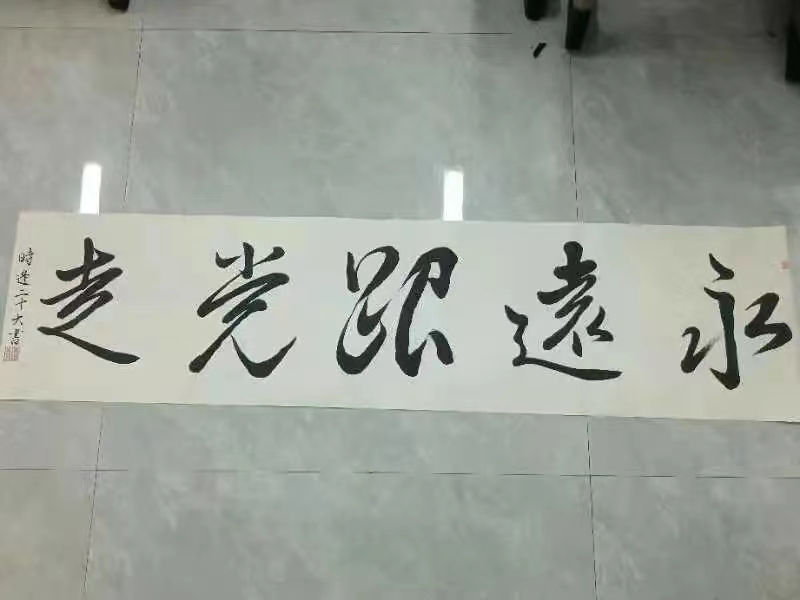 永遠跟党走
時逢二十大書